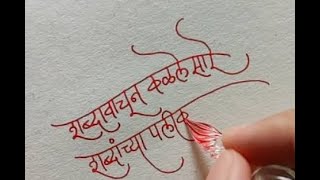 शब्दावाचून कळले सारे
शब्दांच्या पलीक